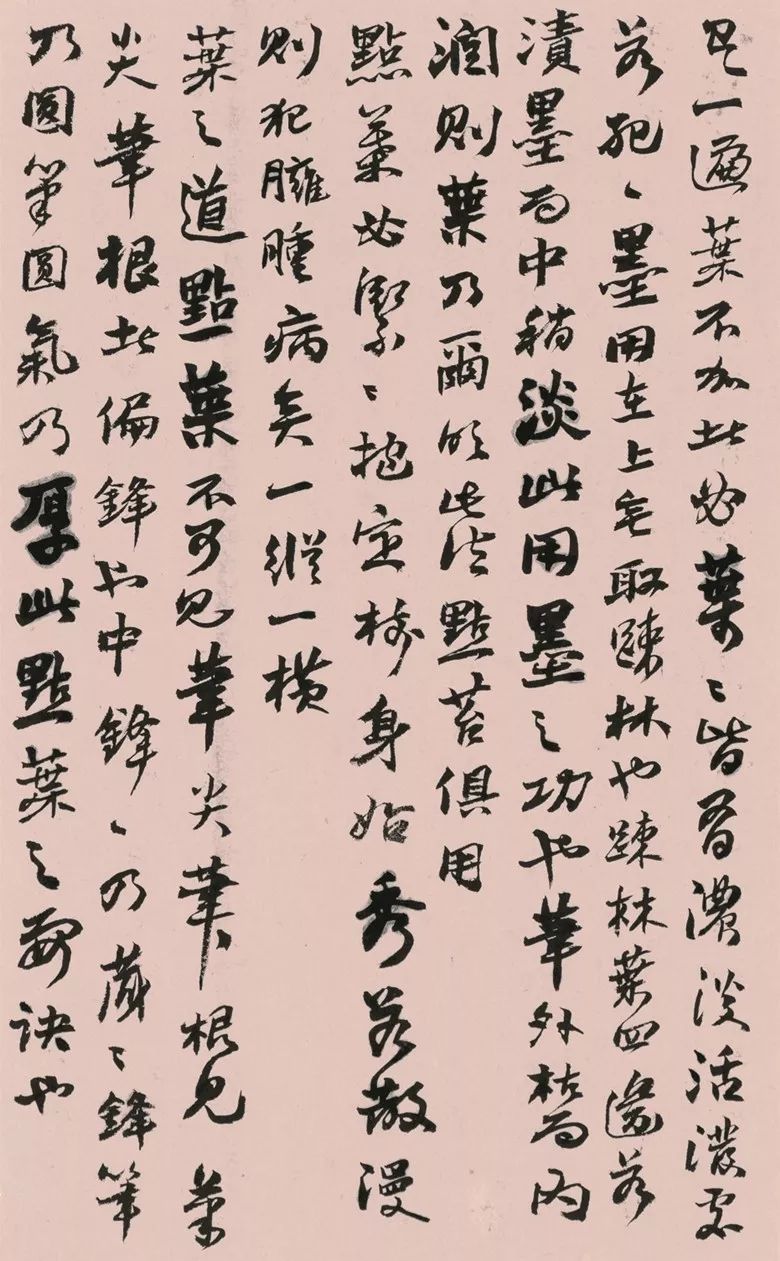 一遍葉不加者必葉〻皆有濃淡活潑
若〻墨用在上毛取踈林也踈林葉四邊若
漬墨而中稍淡此用墨之功也筆外枯而内
潤則葉乃爾此法點苔俱用
點葉必緊〻抱定樹身始秀若散漫
則犯臃腫病矣一縱一横
葉之道點葉不可見筆尖筆根見筆
尖筆根者偏鋒也中鋒〻乃藏〻鋒筆
乃圓筆圓氣乃厚此點葉之要訣也